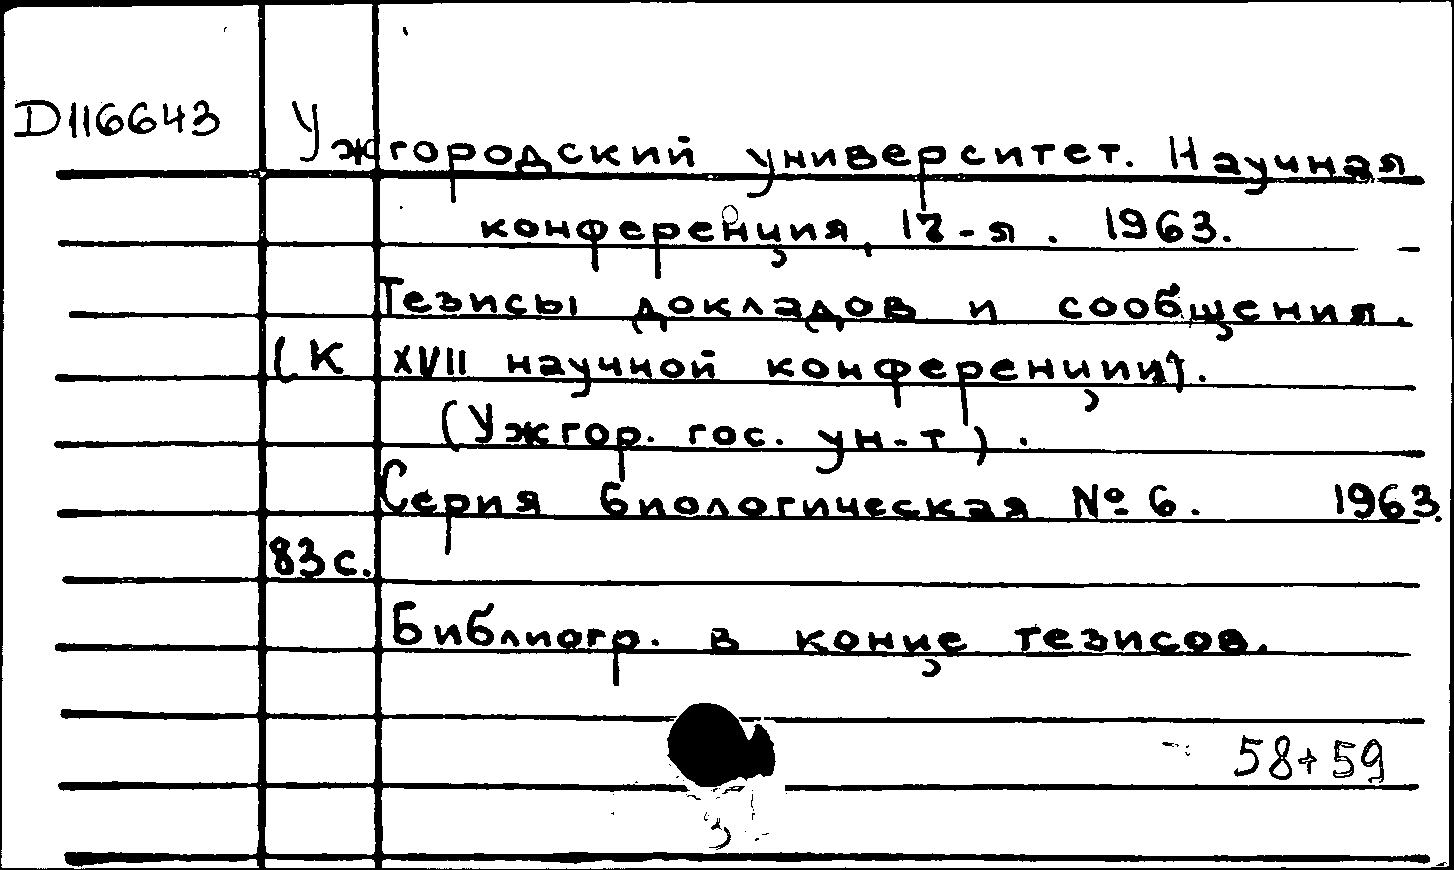 D116643 Ужгородский университет. Научная
конференция, 17-я. 1963.
Тезисы докладов и сообщения.
(К XVII научной конференции).
(Ужгор. гос. ун-т).
Серия биологическая № 6. 1963.
83 с.
Библиогр. в конце тезисов.
58+59